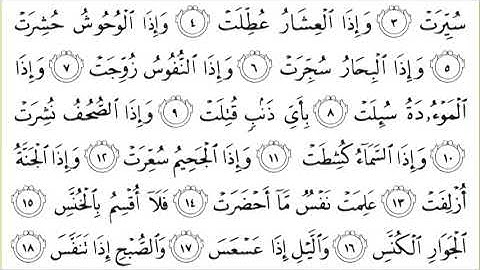 سُيِّرَتۡ ٣ وَإِذَا ٱلۡعِشَارُ عُطِّلَتۡ ٤ وَإِذَا ٱلۡوُحُوشُ حُشِرَتۡ
٥ وَإِذَا ٱلۡبِحَارُ سُجِّرَتۡ ٦ وَإِذَا ٱلنُّفُوسُ زُوِّجَتۡ ٧ وَإِذَا
ٱلۡمَوۡءُۥدَةُ سُئِلَتۡ ٨ بِأَيِّ ذَنۢبٖ قُتِلَتۡ ٩ وَإِذَا ٱلصُّحُفُ نُشِرَتۡ
١٠ وَإِذَا ٱلسَّمَآءُ كُشِطَتۡ ١١ وَإِذَا ٱلۡجَحِيمُ سُعِّرَتۡ ١٢ وَإِذَا ٱلۡجَنَّةُ
أُزۡلِفَتۡ ١٣ عَلِمَتۡ نَفۡسٞ مَّآ أَحۡضَرَتۡ ١٤ فَلَآ أُقۡسِمُ بِٱلۡخُنَّسِ ١٥
ٱلۡجَوَارِ ٱلۡكُنَّسِ ١٦ وَٱلَّيۡلِ إِذَا عَسۡعَسَ ١٧ وَٱلصُّبۡحِ إِذَا تَنَفَّسَ ١٨